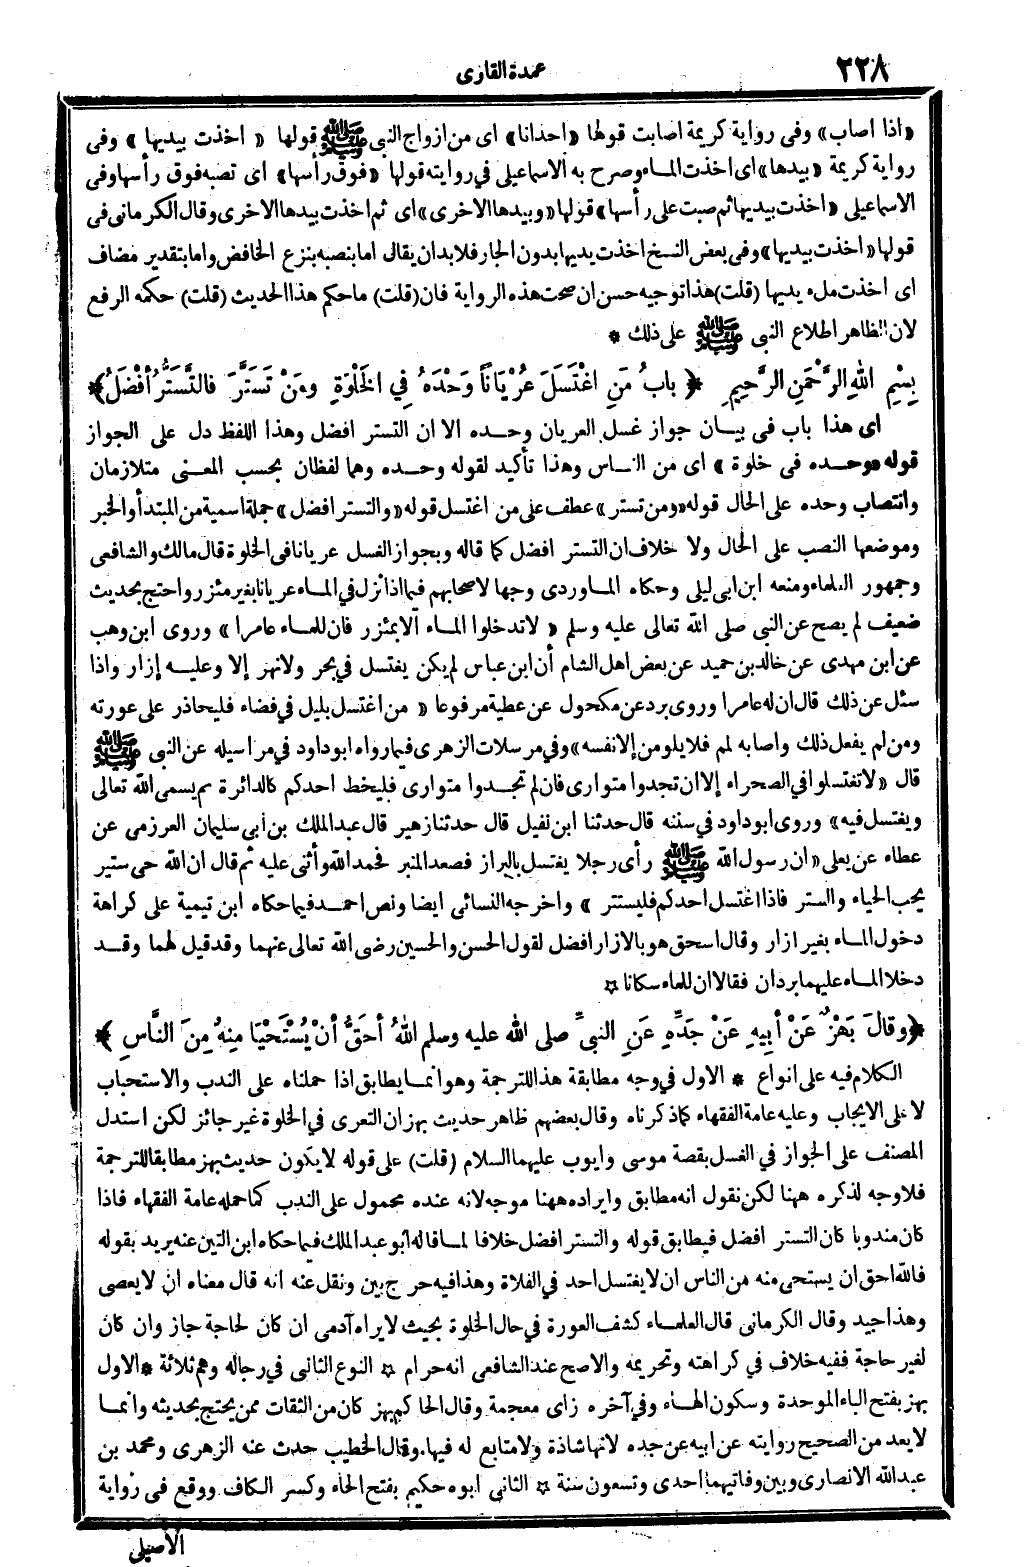 ٢٢٨
عمدة القارى
«اذا اصاب» وفى رواية كريمة اصابت قولها «احدانا» اى من ازواج النبى ﷺ قولها « اخذت بيديها » وفى
رواية كريمة «بيدها» اى اخذت الماء وصرح به الاسماعيلى في روايته قولها «فوق رأسها» اى تصبه فوق رأسها وفى
الاسماعيلى «اخذت بيديها ثم صبت على رأسها» قولها «وبيدها الاخرى» اى ثم اخذت بيدها الاخرى وقال الكرمانى فى
قولها «اخذت بيديها» وفى بعض النسخ اخذت يديها بدون الجار فلابد ان يقال اما بنصبه بنزع الخافض واما بتقدير مضاف
اى اخذت ملء يديها (قلت) هذا توجيه حسن ان صحت هذه الرواية فان (قلت) ما حكم هذا الحديث (قلت) حكمه الرفع
لان الظاهر اطلاع النبى ﷺ على ذلك *
بِسْمِ اللهِ الرَّحْمَنِ الرَّحِيمِ ﴿ بابُ مَنِ اغْتَسَلَ عُرْيَاناً وَحْدَهُ فِي الخَلْوَةِ ومَنْ تَسَتَّرَ فالتَّسَتُّرُ أفْضَلُ ﴾
اى هذا باب فى بيان جواز غسل العريان وحده الا ان التستر افضل وهذا اللفظ دل على الجواز
قوله «وحده فى خلوة » اى من الناس وهذا تأكيد لقوله وحده وهما لفظان بحسب المعنى متلازمان
وانتصاب وحده على الحال قوله «ومن تستر» عطف على من اغتسل قوله «والتستر افضل» جملة اسمية من المبتدأ والخبر
وموضعها النصب على الحال ولا خلاف ان التستر افضل كما قاله وبجواز الغسل عريانا فى الخلوة قال مالك والشافعى
وجمهور العلماء ومنعه ابن ابى ليلى وحكاه الماوردى وجها لاصحابهم فيما اذا نزل في الماء عريانا بغير مئزر واحتج بحديث
ضعيف لم يصح عن النبى صلى الله تعالى عليه وسلم « لا تدخلوا الماء الا بمئزر فان للماء عامرا » وروى ابن وهب
عن ابن مهدى عن خالد بن حميد عن بعض اهل الشام أن ابن عباس لم يكن يغتسل في بحر ولا نهر إلا وعليه إزار واذا
سئل عن ذلك قال ان له عامرا وروى برد عن مكحول عن عطية مرفوعا « من اغتسل بليل في فضاء فليحاذر على عورته
ومن لم يفعل ذلك واصابه لمم فلا يلومن إلا نفسه» وفي مرسلات الزهرى فيما رواه ابو داود في مراسيله عن النبى ﷺ
قال «لا تغتسلوا في الصحراء إلا ان تجدوا متوارى فان لم تجدوا متوارى فليخط احدكم كالدائرة ثم يسمى الله تعالى
ويغتسل فيه» وروى ابو داود في سننه قال حدثنا ابن نفيل قال حدثنا زهير قال عبد الملك بن أبى سليمان العرزمى عن
عطاء عن يعلى «ان رسول الله ﷺ رأى رجلا يغتسل بالبراز فصعد المنبر فحمد الله وأثنى عليه ثم قال ان الله حى ستير
يحب الحياء والستر فاذا اغتسل احدكم فليستتر » واخرجه النسائى ايضا ونص احمد فيما حكاه ابن تيمية على كراهة
دخول الماء بغير ازار وقال اسحق هو بالازار افضل لقول الحسن والحسين رضى الله تعالى عنهما وقد قيل لهما وقد
دخلا الماء عليهما بردان فقالا ان للماء سكانا ☆
﴿ وقالَ بَهْزٌ عَنْ أبِيهِ عَنْ جَدِّهِ عَنِ النبىِّ صلى الله عليه وسلم اللهُ أحَقُّ أنْ يُسْتَحْيَا مِنْهُ مِنَ النَّاسِ ﴾
الكلام فيه على انواع * الاول في وجه مطابقة هذا للترجمة وهو انما يطابق اذا حملناه على الندب والاستحباب
لا على الايجاب وعليه عامة الفقهاء كما ذكرناه وقال بعضهم ظاهر حديث بهز ان التعرى في الخلوة غير جائز لكن استدل
المصنف على الجواز في الغسل بقصة موسى وايوب عليهما السلام (قلت) على قوله لا يكون حديث بهز مطابقا للترجمة
فلا وجه لذكره ههنا لكن نقول انه مطابق وايراده ههنا موجه لانه عنده محمول على الندب كما حمله عامة الفقهاء فاذا
كان مندوبا كان التستر افضل فيطابق قوله والتستر افضل خلافا لما قاله أبو عبد الملك فيما حكاه ابن التين عنه يريد بقوله
فالله احق ان يستحى منه من الناس ان لا يغتسل احد في الفلاة وهذا فيه حرج بين ونقل عنه انه قال معناه ان لا يعصى
وهذا جيد وقال الكرمانى قال العلماء كشف العورة في حال الخلوة بحيث لا يراه آدمى ان كان لحاجة جاز وان كان
لغير حاجة ففيه خلاف في كراهته وتحريمه والاصح عند الشافعى انه حرام ☆ النوع الثانى فى رجاله وهم ثلاثة * الاول
بهز بفتح الباء الموحدة وسكون الهاء وفي آخره زاى معجمة وقال الحاكم بهز كان من الثقات ممن يحتج بحديثه وانما
لا يعد من الصحيح روايته عن ابيه عن جده لانها شاذة ولا متابع له فيها وقال الخطيب حدث عنه الزهرى ومحمد بن
عبد الله الانصارى وبين وفاتيهما احدى وتسعون سنة ☆ الثانى ابوه حكيم بفتح الحاء وكسر الكاف ووقع فى رواية
الأصيلى